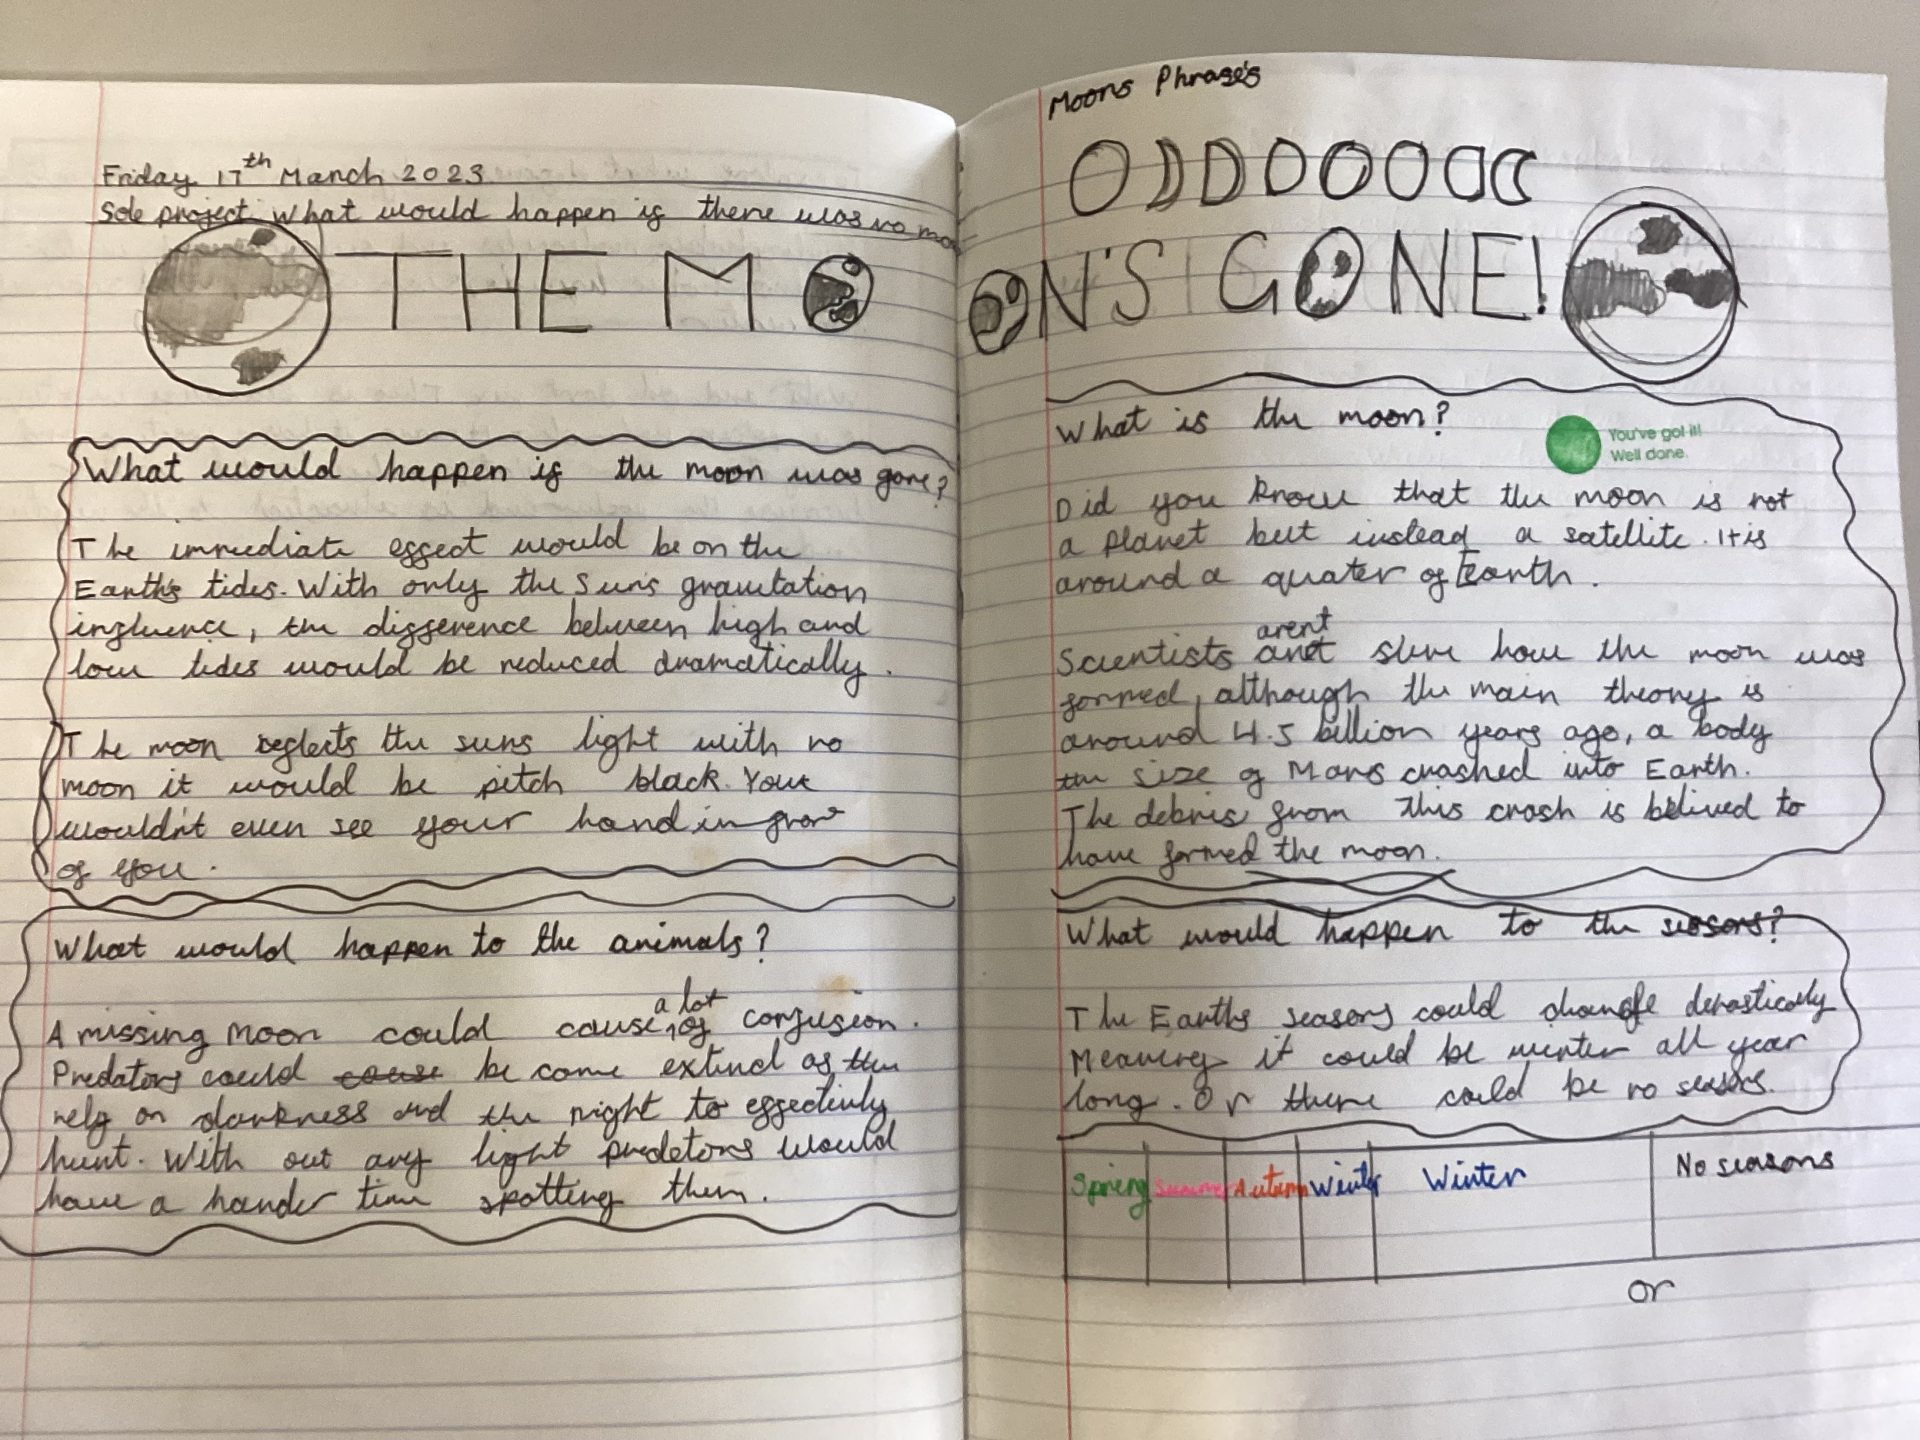 Friday 17th March 2023
Sole project What would happen if there was no moo
THE MO
What would happen if the moon was gone?
The immediate effect would be on the
Earth's tides. With only the Sun's gravitation
influence, the difference between high and
low tides would be reduced dramatically.
The moon reflects the suns light with no
moon it would be pitch black. You
wouldn't even see your hand in front
of you.
What would happen to the animals?
A missing Moon could cause a lot of confusion.
Predators could cause be come extinct as they
rely on darkness and the night to effectively
hunt. With out any light predetors would
have a harder time spotting them.
Moons Phrase's
OON'S GONE!
What is the moon?
You've got it!
Well done.
Did you know that the moon is not
a planet but instead a satellite. It is
around a quater of Earth.
Scientists arent sure how the moon was
formed, although the main theory is
around 4.5 billion years ago, a body
the size of Mars crashed into Earth.
The debris from this crash is belived to
have formed the moon.
What would happen to the seasons?
The Earth's seasons could change derastically
Meaning it could be winter all year
long. Or there could be no seasons.
Spring Summer Autumn Winter Winter No seasons
or